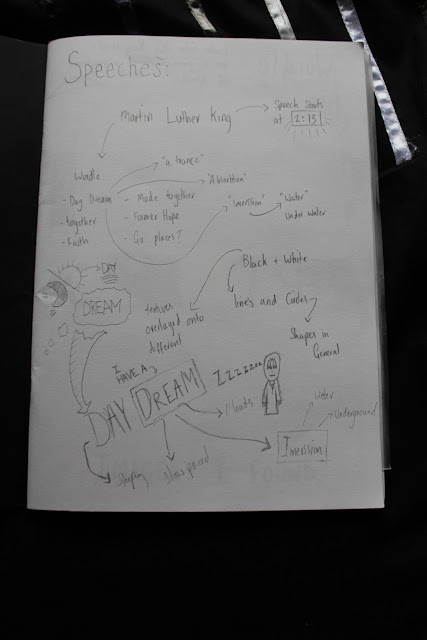 Speeches:
Martin Luther King
Speech Starts
at 2:13
Wordle
- Day Dream
- together
- Faith
"a trance"
"Absorbtion"
- Made together
- Former Hope
- Go places?
"Imerision"
"Water"
Under water
Black + White
lines and Circles
Shapes in
General
textures
overlayed onto
different
DAY
DREAM
I HAVE A
DAY DREAM
ZZZZZzzz
Clouds
Sleeping
Slow paced
Imerision
Water
Underground